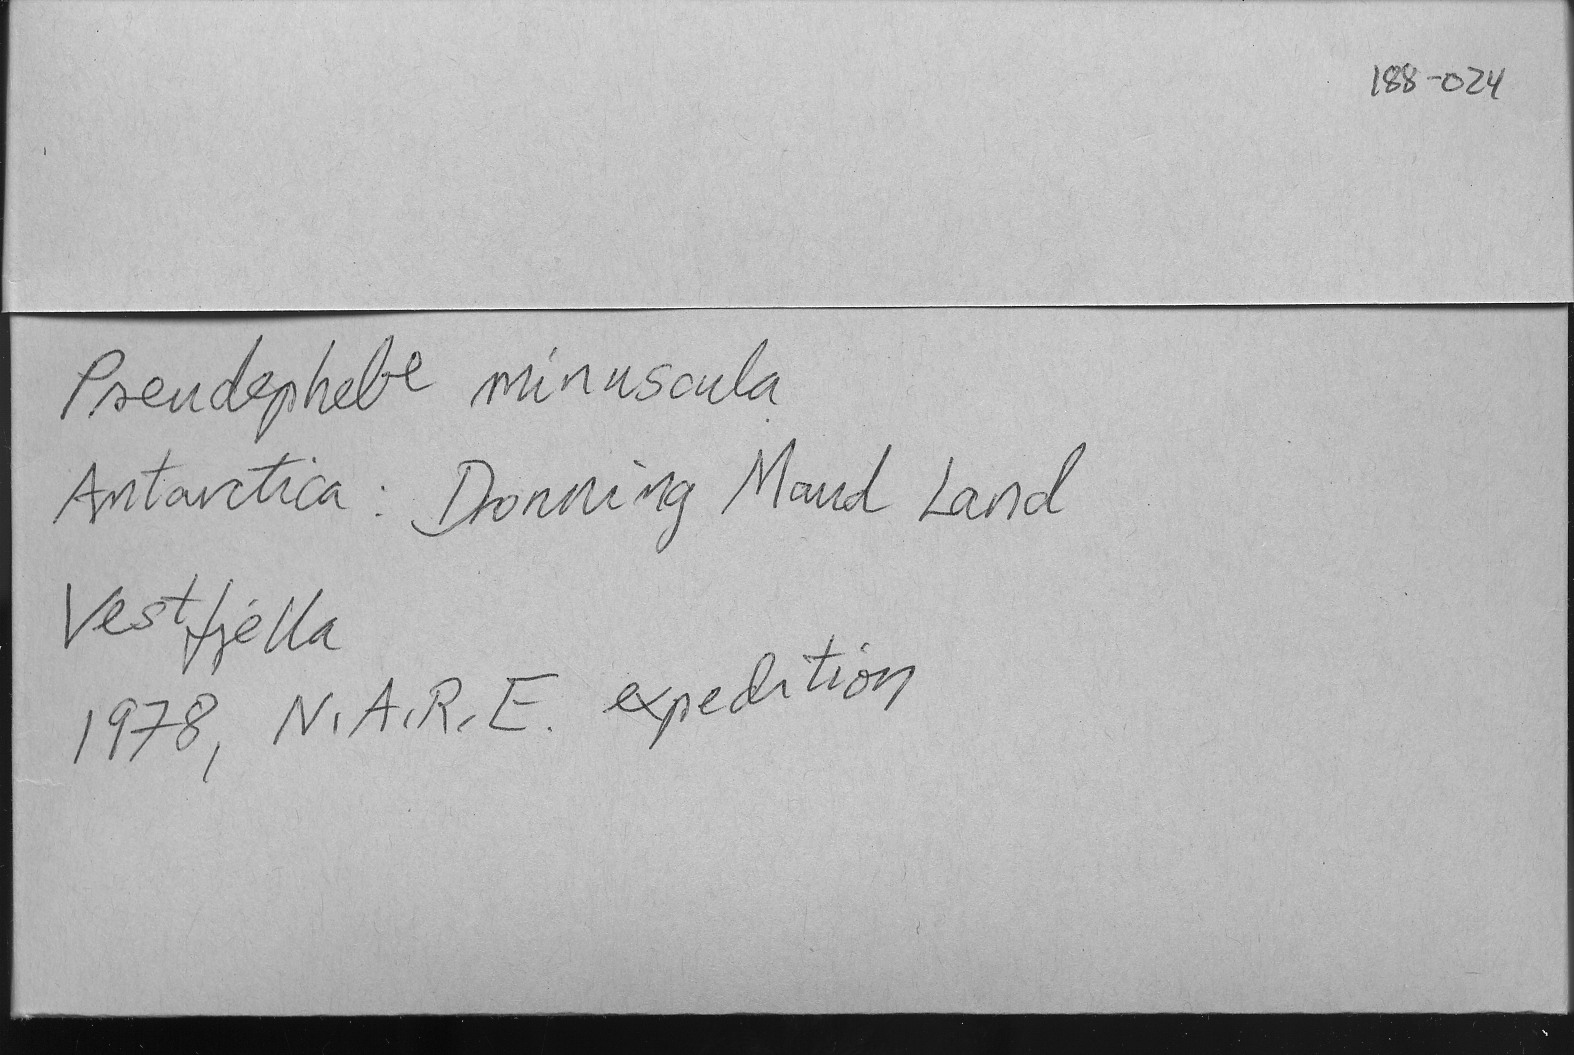 188-024
Pseudephebe minuscula
Antarctica: Dronning Maud Land
Vestfjella
1978, N.A.R.E. expedition